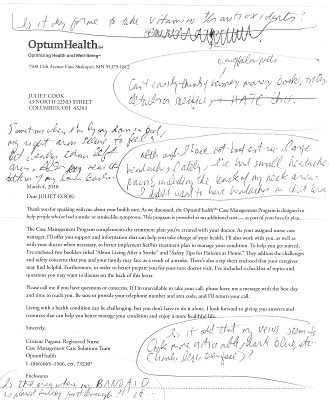 Is it okay for me to take vitamins & antioxidants?
OptumHealth℠
Optimizing Health and Well-Being℠
5500 12th Avenue East, Shakopee, MN 55379-1612
Can't easily think
memory books, titles
details or specifics & HATE this.
JULIET COOK
43 NORTH 22ND STREET
COLUMBUS, OH 43203
Sometimes when I'm lying down in bed,
my right arm
left
I have not had extra large
headaches lately, I've had small headache
pains, including the back of my neck area.
I didn't used to have headaches in that area
March 4, 2010
Dear JULIET COOK:
Thank you for speaking with me about your health care. As we discussed, the OptumHealth℠ Case Management Program is designed to
help people who've had a stroke or stroke-like symptoms. This program is provided at no additional cost — as part of your benefit plan.
The Case Management Program complements the treatment plan you've created with your doctor. As your assigned nurse case
manager, I'll offer you support and information that can help you take charge of your health. I'll also work with you, as well as
with your doctor when necessary, to better implement his/her treatment plan to manage your condition. To help you get started,
I've enclosed two booklets titled "About Living After a Stroke" and "Safety Tips for Patients at Home." They address the challenges
and safety concerns that you and your family may face as a result of a stroke. There's also a tip sheet enclosed that your caregiver
may find helpful. Furthermore, in order to better prepare you for your next doctor visit, I've included a checklist of topics and
questions you may want to discuss on the back of this letter.
Please call me if you have questions or concerns. If I'm unavailable to take your call, please leave me a message with the best day
and time to reach you. Be sure to provide your telephone number and area code, and I'll return your call.
Living with a health condition can be challenging, but you don't have to do it alone. I look forward to giving you answers and
resources that can help you better manage your condition and enjoy a more healthful life.
Sincerely,
Registered Nurse
Case Management Care Solutions Team
OptumHealth
1-(866)665-1566, ext. 73230
Is it odd that my veins seem to
look more noticeable, dark blue, etc
(hands, legs, )?
Enclosures
Is the area where my BANDAID
is placed